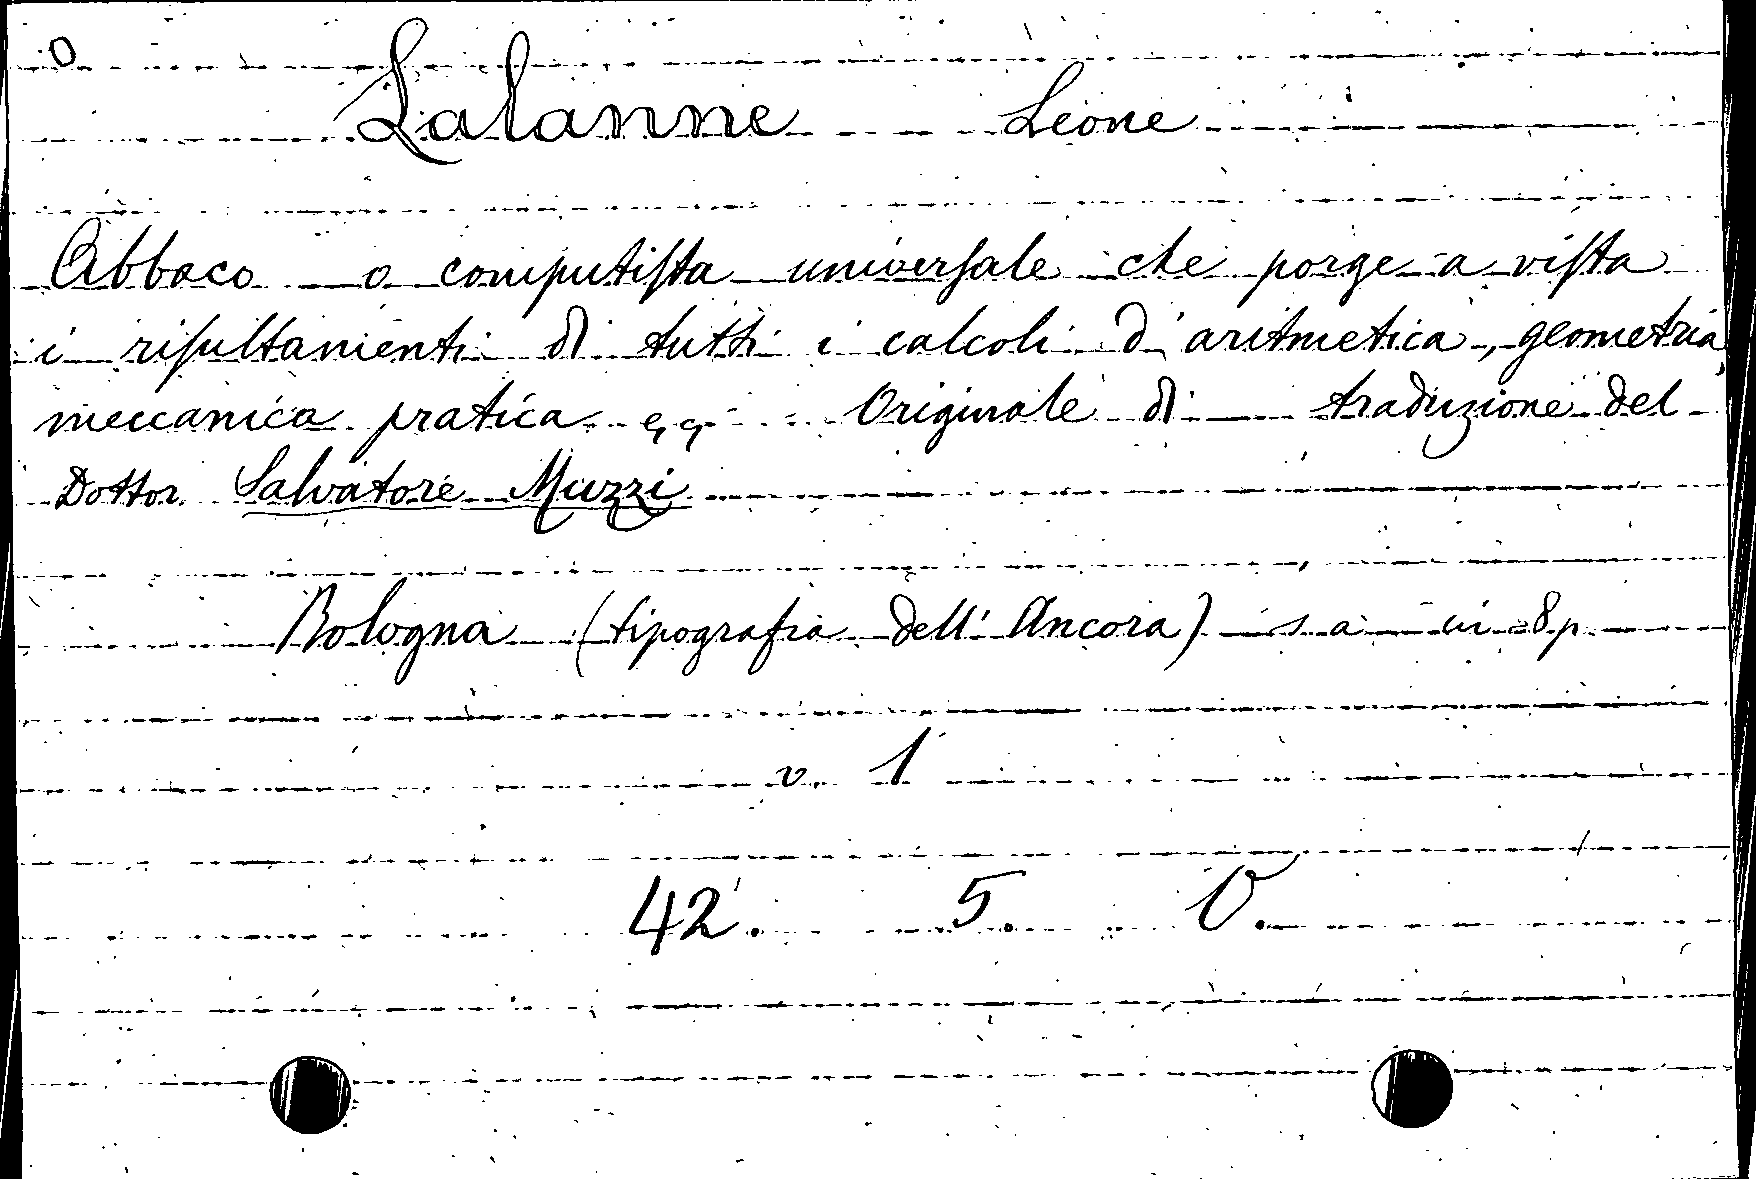 O
Lalanne Leone
Abbaco o computista universale che porge a vista
i risultamenti di tutti i calcoli d'aritmetica, geometria,
meccanica pratica Originale di traduzione del
Dottor Salvatore Muzzi
Bologna (tipografia dell'Ancora) s a in 8p
v. 1
42. 5. V.